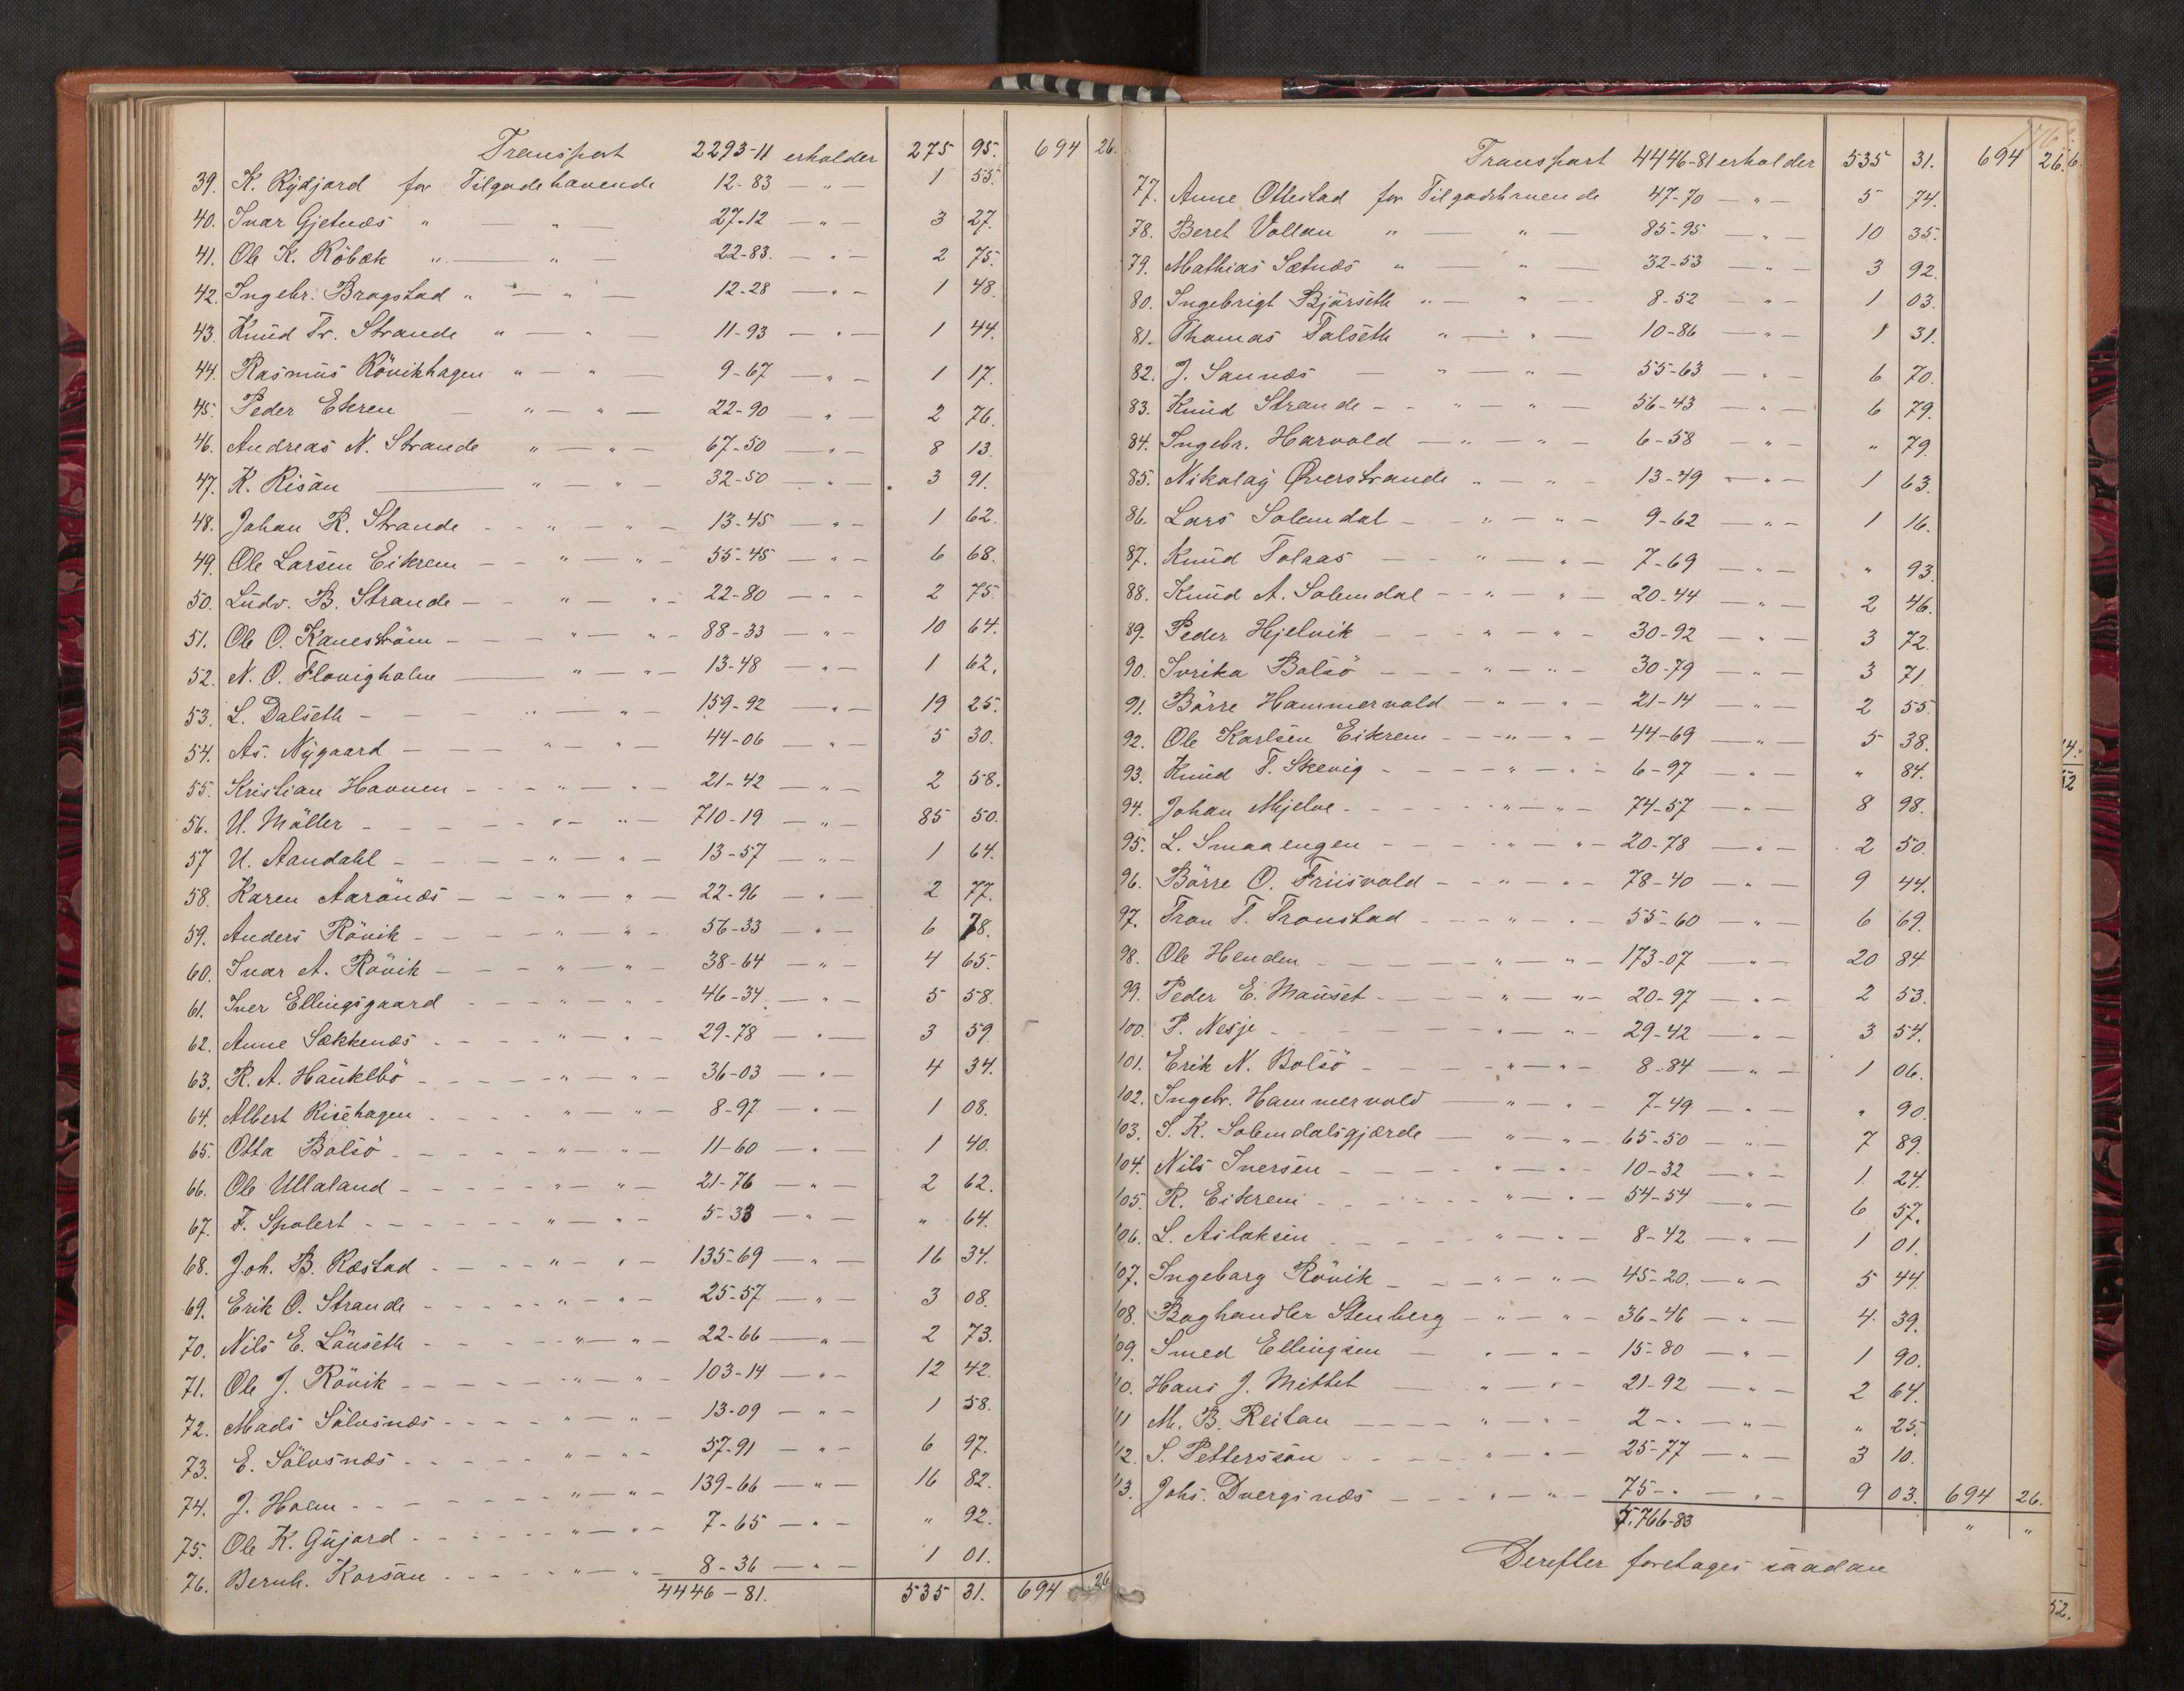 Transport 2293-11 erholder 275 95. 694 26.
39. K. Rydjord for Tilgodehavende 12-83 — " — 1 55.
40. Ivar Gjetnæs " — " — 27-12 — " — 3 27.
41. Ole K. Röbæk " — " — 22-83. — " — 2 75.
42. Ingebr. Bragstad " — " — 12-28 — " — 1 48.
43. Knud Tr. Strande " — " — 11-93 — " — 1 44.
44. Rasmus Rövikhagen " — " — 9-67 — " — 1 17.
45. Peder Ekren — " — " — 22-90 — " — 2 76.
46. Andreas N. Strande " — " — 67-50 — " — 8 13.
47. K. Risan — " — " — 32-50 — " — 3 91.
48. Johan R. Strande - - " — " — 13-45 — " — 1 62.
49. Ole Larsen Eikrem - - " — " — 55-45 — " — 6 68.
50. Ludv. B. Strande - - " — " — 22-80 — " — 2 75.
51. Ole O. Kaneström - - - " — " — 88-33 — " — 10 64.
52. N. O. Flovigholm — " — " — 13-48 — " — 1 62.
53. L. Dalseth - - - " — " — 159-92 — " — 19 25.
54. As. Nygaard - - - " — " — 44-06 — " — 5 30.
55. Kristian Havnen - - - " — " — 21-42 — " — 2 58.
56. U. Möller - - - - " — " — 710-19 — " — 85 50.
57 U. Aandahl - - - - " — " — 13-57 — " — 1 64.
58. Karen Aarönæs - - - " — " — 22-96 — " — 2 77.
59. Anders Rövik - - - - " — " — 56-33 — " — 6 78.
60. Ivar A. Rövik - - - " — " — 38-64 — " — 4 65.
61. Iver Ellingsgaard - - - " — " — 46-34 — " — 5 58.
62. Anne Sækkenæs - - - " — " — 29-78 — " — 3 59.
63. R. A. Hauklebö - - - - " — " — 36-03 — " — 4 34.
64. Albert Risehagen - - - " — " — 8-97 — " — 1 08.
65. Otta Bolsö - - - - " — " — 11-60 — " — 1 40.
66. Ole Ullaland - - - - " — " — 21-76 — " — 2 62.
67. F. Spolert - - - - " — " — 5-33 — " — " 64.
68. Joh. B. Ræstad - - - - " — " — 135-69 — " — 16 34.
69. Erik O. Strande - - - - " — " — 25-57 — " — 3 08.
70. Nils E. Lönseth - - - - " — " — 22-66 — " — 2 73.
71. Ole J. Rövik - - - - " — " — 103-14 — " — 12 42.
72. Mads Sölvsnæs - - - - " — " — 13-09 — " — 1 58.
73. E. Sölvsnæs - - - - " — " — 57-91 — " — 6 97.
74. J. Holm - - - - " — " — 139-66 — " — 16 82.
75. Ole K. Gujord - - - - " — " — 7-65 — " — " 92.
76. Bernh. Korsan - - - - " — " — 8-36 — " — 1 01.
4446-81. 535 31. 694 26
Transport 4446-81 erholder 535 31. 694 26.
77. Anne Ottestad for Tilgodehavende 47-70 — " — 5 74.
78. Beret Vollan " — " — 85-95 — " — 10 35.
79. Mathias Sætnæs " — " — 32-53 — " — 3 92.
80. Ingebrigt Björseth " — " — 8-52 — " — 1 03.
81. Thomas Talseth " — " — 10-86 — " — 1 31.
82. J. Sannæs — " — " — 55-63 — " — 6 70.
83. Knud Strande - - " — " — 56-43 — " — 6 79.
84. Ingebr. Harvold — " — " — 6-58 — " — " 79.
85. Nikolay Øverstrande " — " — 13-49 — " — 1 63.
86. Lars Solemdal - - " — " — 9-62 — " — 1 16.
87. Knud Tolaas - - " — " — 7-69 — " — " 93.
88. Knud A. Solemdal - - " — " — 20-44 — " — 2 46.
89. Peder Hjelvik - - - " — " — 30-92 — " — 3 72.
90. Ivrika Bolsö - - - " — " — 30-79 — " — 3 71
91. Börre Hammervold - " — " — 21-14 — " — 2 55.
92. Ole Karlsen Eikrem - - " — " — 44-69 — " — 5 38.
93. Knud T. Skevig - - - - " — " — 6-97 — " — " 84.
94. Johan Mjelve - - - - " — " — 74-57 — " — 8 98.
95. L. Smaaengen - - - " — " — 20-78 — " — 2 50.
96. Börre O. Friisvold - - " — " — 78-40 — " — 9 44.
97. Tron T. Tronstad - - - " — " — 55-60 — " — 6 69.
98. Ole Henden - - - - " — " — 173-07 — " — 20 84.
99. Peder E. Mauset - - - - " — " — 20-97 — " — 2 53.
100. P. Nesje - - - - " — " — 29-42 — " — 3 54.
101. Erik N. Bolsö - - - - " — " — 8-84 — " — 1 06.
102. Ingebr. Hammervold — " — " — 7-49 — " — " 90.
103. S. K. Solemdalsgjærde — " — " — 65-50 — " — 7 89.
104. Nils Iversen - - - - " — " — 10-32 — " — 1 24.
105. R. Eikrem - - - - " — " — 54-54 — " — 6 57.
106. L. Aslaksen - - - - " — " — 8-42 — " — 1 01.
107. Ingeborg Rövik - - - " — " — 45-20. — " — 5 44.
108. Boghandler Stenberg - " — " — 36-46 — " — 4. 39.
109. Smed Ellingsen — " — " — 15-80 — " — 1 90.
110. Hans J. Mittet — " — " — 21-92 — " — 2 64.
111 M. B. Reitan - - - - " — " — 2-" — " — " 25.
112. S. Pettersson - - - - " — " — 25-77 — " — 3 10.
113. Johs. Dvergsnæs - - - " — " — 75-" — " — 9 03. 694 26.
5.766-83 " "
Derefter foretages saadan
52.